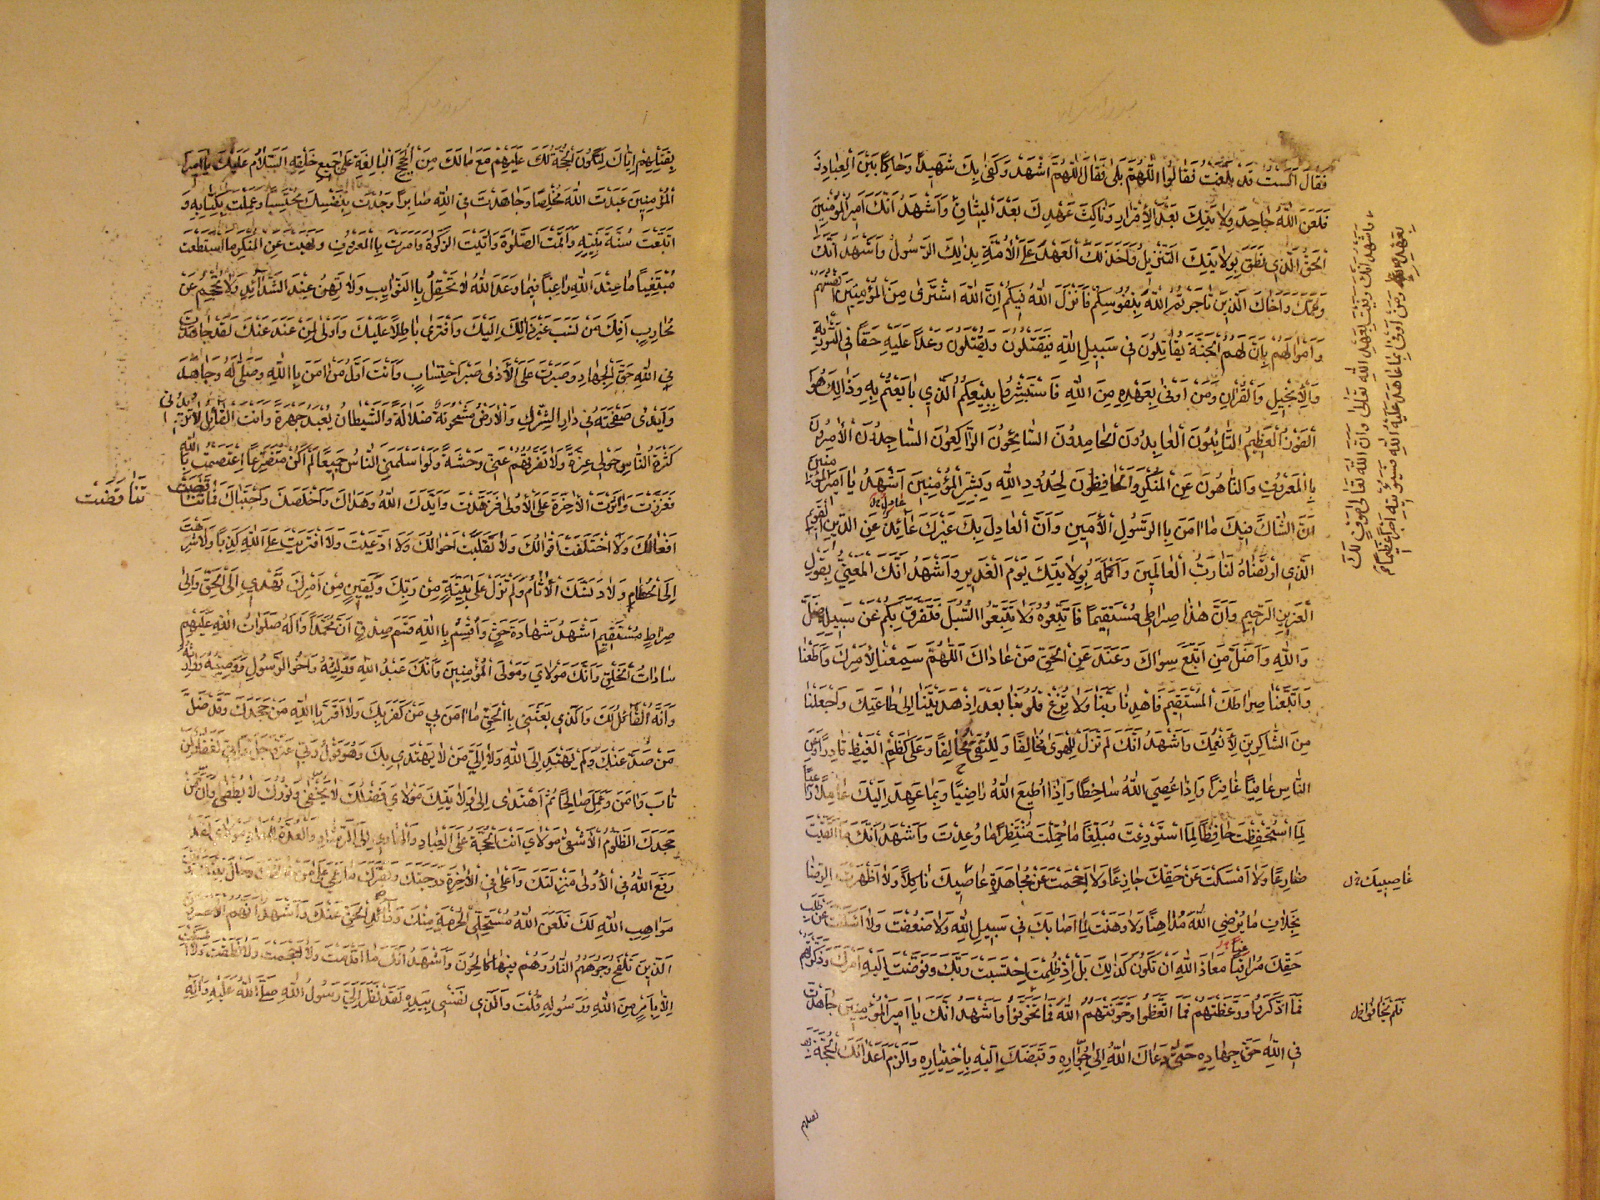 فَقَالَ اَلَسْتُ قَدْ بَلَّغْتُ فَقَالُوا اَللّٰهُمَّ بَلٰى فَقَالَ اَللّٰهُمَّ اشْهَدْ وَكَفٰى بِكَ شَهِيدًا وَحَاكِمًا بَيْنَ الْعِبَادِ
فَلَعَنَ اللّٰهُ جَاحِدَ وِلَايَتِكَ بَعْدَ الْاِقْرَارِ وَنَاكِثَ عَهْدِكَ بَعْدَ الْمِيثَاقِ وَاَشْهَدُ اَنَّكَ اَمِيرُ الْمُؤْمِنِينَ
اَلْحَقُّ الَّذِي نَطَقَ بِوِلَايَتِكَ التَّنْزِيلُ وَاَخَذَ لَكَ الْعَهْدَ عَلَى الْاُمَّةِ بِذٰلِكَ الرَّسُولُ وَاَشْهَدُ اَنَّكَ
وَعَمَّكَ وَاَخَاكَ الَّذِينَ تَاجَرْتُمُ اللّٰهَ بِنُفُوسِكُمْ فَاَنْزَلَ اللّٰهُ فِيكُمْ اِنَّ اللّٰهَ اشْتَرٰى مِنَ الْمُؤْمِنِينَ اَنْفُسَهُمْ
وَاَمْوَالَهُمْ بِاَنَّ لَهُمُ الْجَنَّةَ يُقَاتِلُونَ فِي سَبِيلِ اللّٰهِ فَيَقْتُلُونَ وَيُقْتَلُونَ وَعْدًا عَلَيْهِ حَقًّا فِي التَّوْرٰيةِ
وَالْاِنْجِيلِ وَالْقُرْآنِ وَمَنْ اَوْفٰى بِعَهْدِهِ مِنَ اللّٰهِ فَاسْتَبْشِرُوا بِبَيْعِكُمُ الَّذِي بَايَعْتُمْ بِهِ وَذٰلِكَ هُوَ
الْفَوْزُ الْعَظِيمُ التَّائِبُونَ الْعَابِدُونَ الْحَامِدُونَ السَّائِحُونَ الرَّاكِعُونَ السَّاجِدُونَ الْاٰمِرُونَ
بِالْمَعْرُوفِ وَالنَّاهُونَ عَنِ الْمُنْكَرِ وَالْحَافِظُونَ لِحُدُودِ اللّٰهِ وَبَشِّرِ الْمُؤْمِنِينَ اَشْهَدُ يَا اَمِيرَ الْمُؤْمِنِينَ
اَنَّ الشَّاكَّ فِيكَ مَا اٰمَنَ بِالرَّسُولِ الْاَمِينِ وَاَنَّ الْعَادِلَ بِكَ غَيْرَكَ عَائِدٌ عَنِ الدِّينِ الْقَوِيمِ
الَّذِي ارْتَضَاهُ لَنَا رَبُّ الْعَالَمِينَ وَاَكْمَلَهُ بِوِلَايَتِكَ يَوْمَ الْغَدِيرِ وَاَشْهَدُ اَنَّكَ الْمَعْنِيُّ بِقَوْلِ
الْعَزِيزِ الرَّحِيمِ وَاَنَّ هٰذَا صِرَاطِي مُسْتَقِيمًا فَاتَّبِعُوهُ وَلَا تَتَّبِعُوا السُّبُلَ فَتَفَرَّقَ بِكُمْ عَنْ سَبِيلِهِ ضَلَّ
وَاللّٰهِ وَاَضَلَّ مَنِ اتَّبَعَ سِوَاكَ وَعَنَدَ عَنِ الْحَقِّ مَنْ عَادَاكَ اَللّٰهُمَّ سَمِعْنَا لِاَمْرِكَ وَاَطَعْنَا
وَاتَّبَعْنَا صِرَاطَكَ الْمُسْتَقِيمَ فَاهْدِنَا رَبَّنَا وَلَا تُزِغْ قُلُوبَنَا بَعْدَ اِذْ هَدَيْتَنَا اِلٰى طَاعَتِكَ وَاجْعَلْنَا
مِنَ الشَّاكِرِينَ لِاَنْعُمِكَ وَاَشْهَدُ اَنَّكَ لَمْ تَزَلْ لِلْهَوٰى مُخَالِفًا وَلِلتُّقٰى مُحَالِفًا وَعَلٰى كَظْمِ الْغَيْظِ قَادِرًا وَعَنِ
النَّاسِ عَافِيًا غَافِرًا وَاِذَا عُصِيَ اللّٰهُ سَاخِطًا وَاِذَا اُطِيعَ اللّٰهُ رَاضِيًا وَبِمَا عَهِدَ اِلَيْكَ عَامِلًا رَاعِيًا
لِمَا اسْتُحْفِظْتَ حَافِظًا لِمَا اسْتُودِعْتَ مُبَلِّغًا مَا حُمِّلْتَ مُنْتَظِرًا مَا وُعِدْتَ وَاَشْهَدُ اَنَّكَ مَا اتَّقَيْتَ
ضَارِعًا وَلَا اَمْسَكْتَ عَنْ حَقِّكَ جَازِعًا وَلَا اَحْجَمْتَ عَنْ مُجَاهَدَةِ غَاصِبِكَ نَاكِلًا وَلَا اَظْهَرْتَ الرِّضَا
بِخِلَافِ مَا يُرْضِي اللّٰهَ مُدَاهِنًا وَلَا وَهَنْتَ لِمَا اَصَابَكَ فِي سَبِيلِ اللّٰهِ وَلَا ضَعُفْتَ وَلَا اسْتَكَنْتَ عَنْ طَلَبِ
حَقِّكَ مُرَاقِبًا مَعَاذَ اللّٰهِ اَنْ تَكُونَ كَذٰلِكَ بَلْ اِذْ ظُلِمْتَ احْتَسَبْتَ رَبَّكَ وَفَوَّضْتَ اِلَيْهِ اَمْرَكَ وَذَكَّرْتَهُمْ
فَمَا ادَّكَرُوا وَوَعَظْتَهُمْ فَمَا اتَّعَظُوا وَخَوَّفْتَهُمُ اللّٰهَ فَمَا تَخَوَّفُوا وَاَشْهَدُ اَنَّكَ يَا اَمِيرَ الْمُؤْمِنِينَ جَاهَدْتَ
فِي اللّٰهِ حَقَّ جِهَادِهِ حَتّٰى دَعَاكَ اللّٰهُ اِلٰى جِوَارِهِ وَقَبَضَكَ اِلَيْهِ بِاخْتِيَارِهِ وَاَلْزَمَ اَعْدَائَكَ الْحُجَّةَ
وَاَشْهَدُ اَنَّكَ وَفَيْتَ بِعَهْدِ اللّٰهِ تَعَالٰى وَاَنَّ اللّٰهَ تَعَالٰى مُوفٍ لَكَ
بِعَهْدِهِ وَمَنْ اَوْفٰى بِمَا عَاهَدَ عَلَيْهُ اللّٰهَ فَسَيُؤْتِيهِ اَجْرًا عَظِيمًا
غَاصِبِيكَ
بِقَتْلِهِمْ اِيَّاكَ لِتَكُونَ الْحُجَّةُ لَكَ عَلَيْهِمْ مَعَ مَا لَكَ مِنَ الْحُجَجِ الْبَالِغَةِ عَلٰى جَمِيعِ خَلْقِهِ اَلسَّلَامُ عَلَيْكَ يَا اَمِيرَ
الْمُؤْمِنِينَ عَبَدْتَ اللّٰهَ مُخْلِصًا وَجَاهَدْتَ فِي اللّٰهِ صَابِرًا وَجُدْتَ بِنَفْسِكَ مُحْتَسِبًا وَعَمِلْتَ بِكِتَابِهِ وَ
اتَّبَعْتَ سُنَّةَ نَبِيِّهِ وَاَقَمْتَ الصَّلٰوةَ وَاٰتَيْتَ الزَّكٰوةَ وَاَمَرْتَ بِالْمَعْرُوفِ وَنَهَيْتَ عَنِ الْمُنْكَرِ مَا اسْتَطَعْتَ
مُبْتَغِيًا مَا عِنْدَ اللّٰهِ رَاغِبًا فِيمَا وَعَدَ اللّٰهُ لَا تَحْفِلُ بِالنَّوَائِبِ وَلَا تَهِنُ عِنْدَ الشَّدَائِدِ وَلَا تُحْجِمُ عَنْ
مُحَارِبٍ اَفِكَ مَنْ نَسَبَ غَيْرَ ذٰلِكَ اِلَيْكَ وَافْتَرٰى بَاطِلًا عَلَيْكَ وَاَوْلٰى لِمَنْ عَنَدَ عَنْكَ لَقَدْ جَاهَدْتَ
فِي اللّٰهِ حَقَّ الْجِهَادِ وَصَبَرْتَ عَلَى الْاَذٰى صَبْرَ احْتِسَابٍ وَاَنْتَ اَوَّلُ مَنْ اٰمَنَ بِاللّٰهِ وَصَلّٰى لَهُ وَجَاهَدَ
وَاَبْدٰى صَفْحَتَهُ فِي دَارِ الشِّرْكِ وَالْاَرْضُ مَشْحُونَةٌ ضَلَالَةً وَالشَّيْطَانُ يُعْبَدُ جَهْرَةً وَاَنْتَ الْقَائِلُ لَا تَزِيدُنِي
كَثْرَةُ النَّاسِ حَوْلِي عِزَّةً وَلَا تَفَرُّقُهُمْ عَنِّي وَحْشَةً وَلَوْ اَسْلَمَنِي النَّاسُ جَمِيعًا لَمْ اَكُنْ مُتَضَرِّعًا اعْتَصَمْتَ بِاللّٰهِ
فَعَزَزْتَ وَاٰثَرْتَ الْاٰخِرَةَ عَلَى الْاُولٰى فَزَهِدْتَ وَاَيَّدَكَ اللّٰهُ وَهَدَاكَ وَاَخْلَصَكَ وَاجْتَبَاكَ فَمَا تَنَاقَضَتْ
اَفْعَالُكَ وَلَا اخْتَلَفَتْ اَقْوَالُكَ وَلَا تَقَلَّبَتْ اَحْوَالُكَ وَلَا ادَّعَيْتَ وَلَا افْتَرَيْتَ عَلَى اللّٰهِ كَذِبًا وَلَا شَرِهْتَ
اِلَى الْحُطَامِ وَلَا دَنَّسَكَ الْاٰثَامُ وَلَمْ تَزَلْ عَلٰى بَيِّنَةٍ مِنْ رَبِّكَ وَيَقِينٍ مِنْ اَمْرِكَ تَهْدِي اِلَى الْحَقِّ وَاِلٰى
صِرَاطٍ مُسْتَقِيمٍ اَشْهَدُ شَهَادَةَ حَقٍّ وَاُقْسِمُ بِاللّٰهِ قَسَمَ صِدْقٍ اَنَّ مُحَمَّدًا وَاٰلَهُ صَلَوَاتُ اللّٰهِ عَلَيْهِمْ
سَادَاتُ الْخَلْقِ وَاَنَّكَ مَوْلَايَ وَمَوْلَى الْمُؤْمِنِينَ وَاَنَّكَ عَبْدُ اللّٰهِ وَوَلِيُّهُ وَاَخُو الرَّسُولِ وَوَصِيُّهُ وَوَارِثُهُ
وَاَنَّهُ الْقَائِلُ لَكَ وَالَّذِي بَعَثَنِي بِالْحَقِّ مَا اٰمَنَ بِي مَنْ كَفَرَ بِكَ وَلَا اَقَرَّ بِاللّٰهِ مَنْ جَحَدَكَ وَقَدْ ضَلَّ
مَنْ صَدَّ عَنْكَ وَلَمْ يَهْتَدِ اِلَى اللّٰهِ وَلَا اِلَيَّ مَنْ لَا يَهْتَدِي بِكَ وَهُوَ قَوْلُ رَبِّي عَزَّ وَجَلَّ وَاِنِّي لَغَفَّارٌ لِمَنْ
تَابَ وَاٰمَنَ وَعَمِلَ صَالِحًا ثُمَّ اهْتَدٰى اِلٰى وِلَايَتِكَ مَوْلَايَ فَضْلُكَ لَا يَخْفٰى وَنُورُكَ لَا يُطْفٰى وَاَنَّ مَنْ
جَحَدَكَ الظَّلُومُ الْاَشْقٰى مَوْلَايَ اَنْتَ الْحُجَّةُ عَلَى الْعِبَادِ وَالْهَادِي اِلَى الرَّشَادِ وَالْعُدَّةُ لِلْمَعَادِ مَوْلَايَ لَقَدْ
رَفَعَ اللّٰهُ فِي الْاُولٰى مَنْزِلَتَكَ وَاَعْلٰى فِي الْاٰخِرَةِ دَرَجَتَكَ وَبَصَّرَكَ مَا عَمِيَ عَلٰى مَنْ خَالَفَكَ وَحَالَ بَيْنَكَ وَ
مَوَاهِبِ اللّٰهِ لَكَ فَلَعَنَ اللّٰهُ مُسْتَحِلِّي الْحُرْمَةِ مِنْكَ وَذَائِدِي الْحَقِّ عَنْكَ وَاَشْهَدُ اَنَّهُمُ الْاَخْسَرُونَ
الَّذِينَ تَلْفَحُ وُجُوهَهُمُ النَّارُ وَهُمْ فِيهَا كَالِحُونَ وَاَشْهَدُ اَنَّكَ مَا اَقْدَمْتَ وَلَا اَحْجَمْتَ وَلَا نَطَقْتَ وَلَا
اِلَّا بِاَمْرٍ مِنَ اللّٰهِ وَرَسُولِهِ قُلْتَ وَالَّذِي نَفْسِي بِيَدِهِ لَقَدْ نَظَرَ اِلَيَّ رَسُولُ اللّٰهِ صَلَّى اللّٰهُ عَلَيْهِ وَاٰلِهِ
تَنَاقَضَتْ